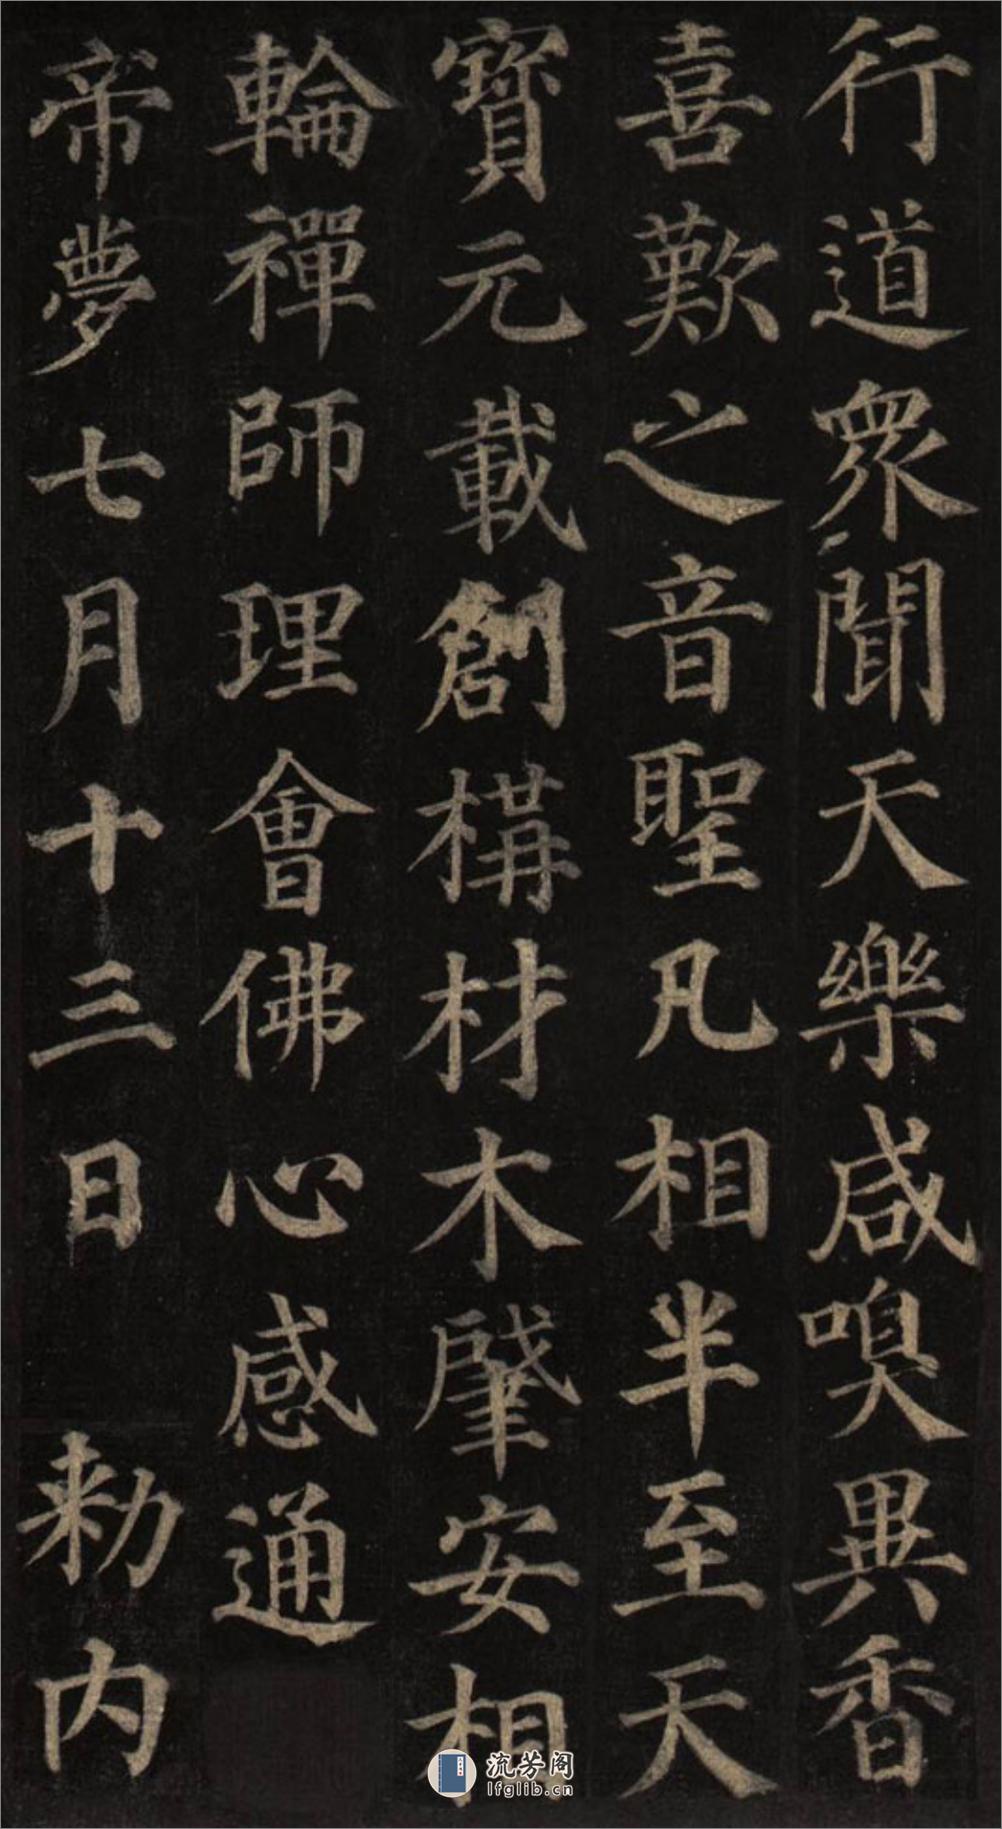 行道眾聞天樂咸嗅異香
喜歎之音聖凡相半至天
寶元載創構材木肇安相
輪禪師理會佛心感通
帝夢七月十三日 勑內
流芳阁
lfglib.cn